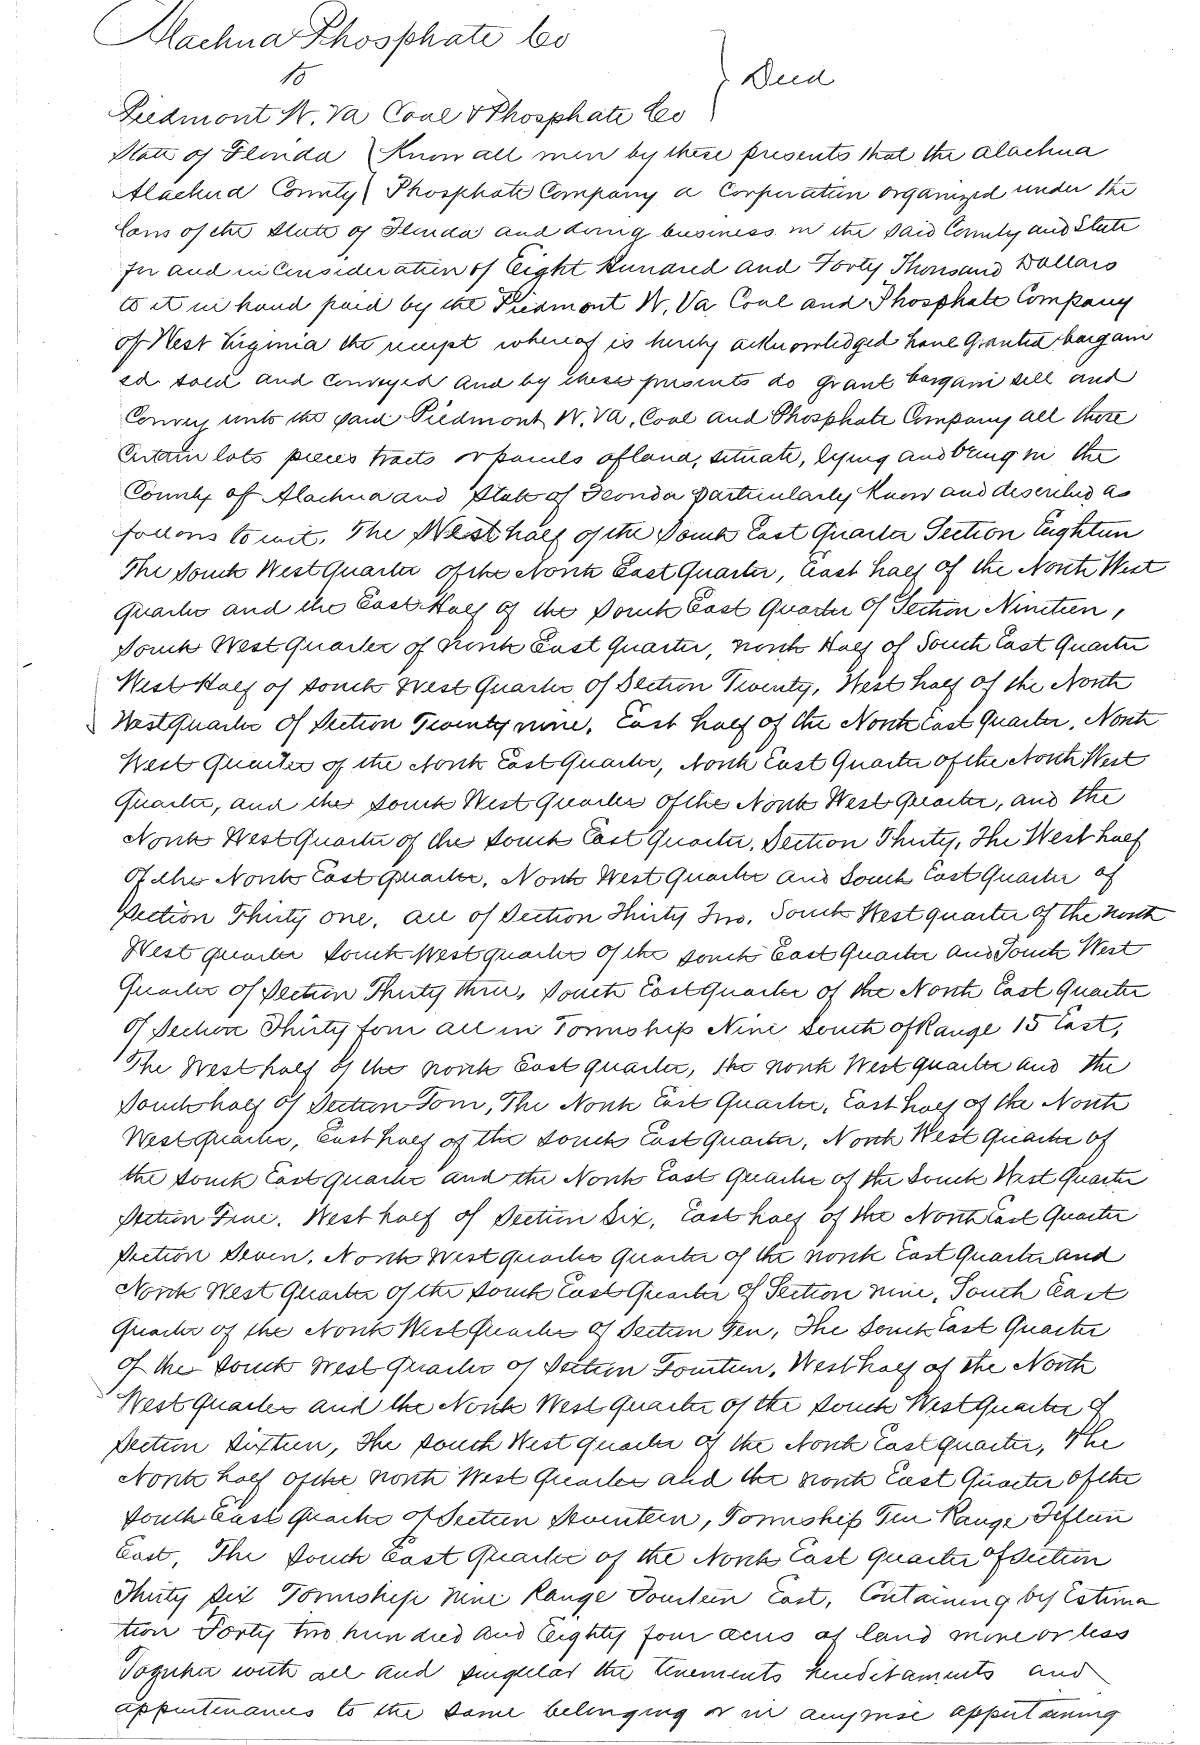 Alachua Phosphate Co
to
Deed
Piedmont W. Va Coal & Phosphate Co
State of Florida Know all men by these presents that the Alachua
Alachua County Phosphate Company a Corporation organized under the
laws of the State of Florida and doing business in the said County and State
for and in Consideration of Eight Hundred and Forty Thousand Dollars
to it in hand paid by the Piedmont W. Va Coal and Phosphate Company
of West Virginia the receipt whereof is hereby acknowledged have Granted bargain
ed sold and conveyed and by these presents do grant bargain sell and
Convey unto the said Piedmont W. Va, Coal and Phosphate Company all those
Certain lots pieces tracts or parcels of land, situate, lying and being in the
County of Alachua and State of Florida particularly Know and described as
follows to wit. The West half of the South East Quarter Section Eighteen
The South West Quarter of the North East Quarter, East half of the North West
Quarter and the East Half of the South East Quarter of Section Nineteen,
South West Quarter of North East Quarter, North Half of South East Quarter
West Half of South West Quarter of Section Twenty, West half of the North
West Quarter of Section Twenty nine, East half of the North East Quarter, North
West Quarter of the North East Quarter, North East Quarter of the North West
Quarter, and the South West Quarter of the North West Quarter, and the
North West Quarter of the South East Quarter, Section Thirty, The West half
of the North East quarter, North West Quarter and South East Quarter of
Section Thirty one, all of Section Thirty Two, South West quarter of the North
West quarter South West quarter of the South East Quarter and South West
Quarter of Section Thirty three, South East quarter of the North East Quarter
of Section Thirty four all in Township Nine South of Range 15 East,
The West half of the North East quarter, the North West quarter and the
South half of Section Four, The North East Quarter, East half of the North
West quarter, East half of the South East Quarter, North West Quarter of
the South East quarter and the North East Quarter of the South West Quarter
Section Five, West half of Section Six, East half of the North East Quarter
Section Seven, North West quarter quarter of the North East Quarter and
North West Quarter of the South East Quarter of Section nine, South East
Quarter of the North West Quarter of Section Ten, The South East Quarter
of the South West Quarter of Section Fourteen, West half of the North
West Quarter and the North West Quarter of the South West Quarter of
Section Sixteen, The South West quarter of the North East quarter, The
North half of the North West Quarter and the North East Quarter of the
South East Quarter of Section Seventeen, Township Ten Range Fifteen
East, The South East Quarter of the North East Quarter of Section
Thirty Six Township Nine Range Fourteen East, Containing by Estima
tion Forty two hundred and Eighty four acres of land more or less
Together with all and singular the tenements hereditaments and
appurtenances to the same belonging or in anywise appertaining